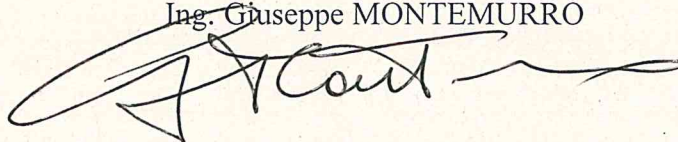 Ing. Giuseppe MONTEMURRO